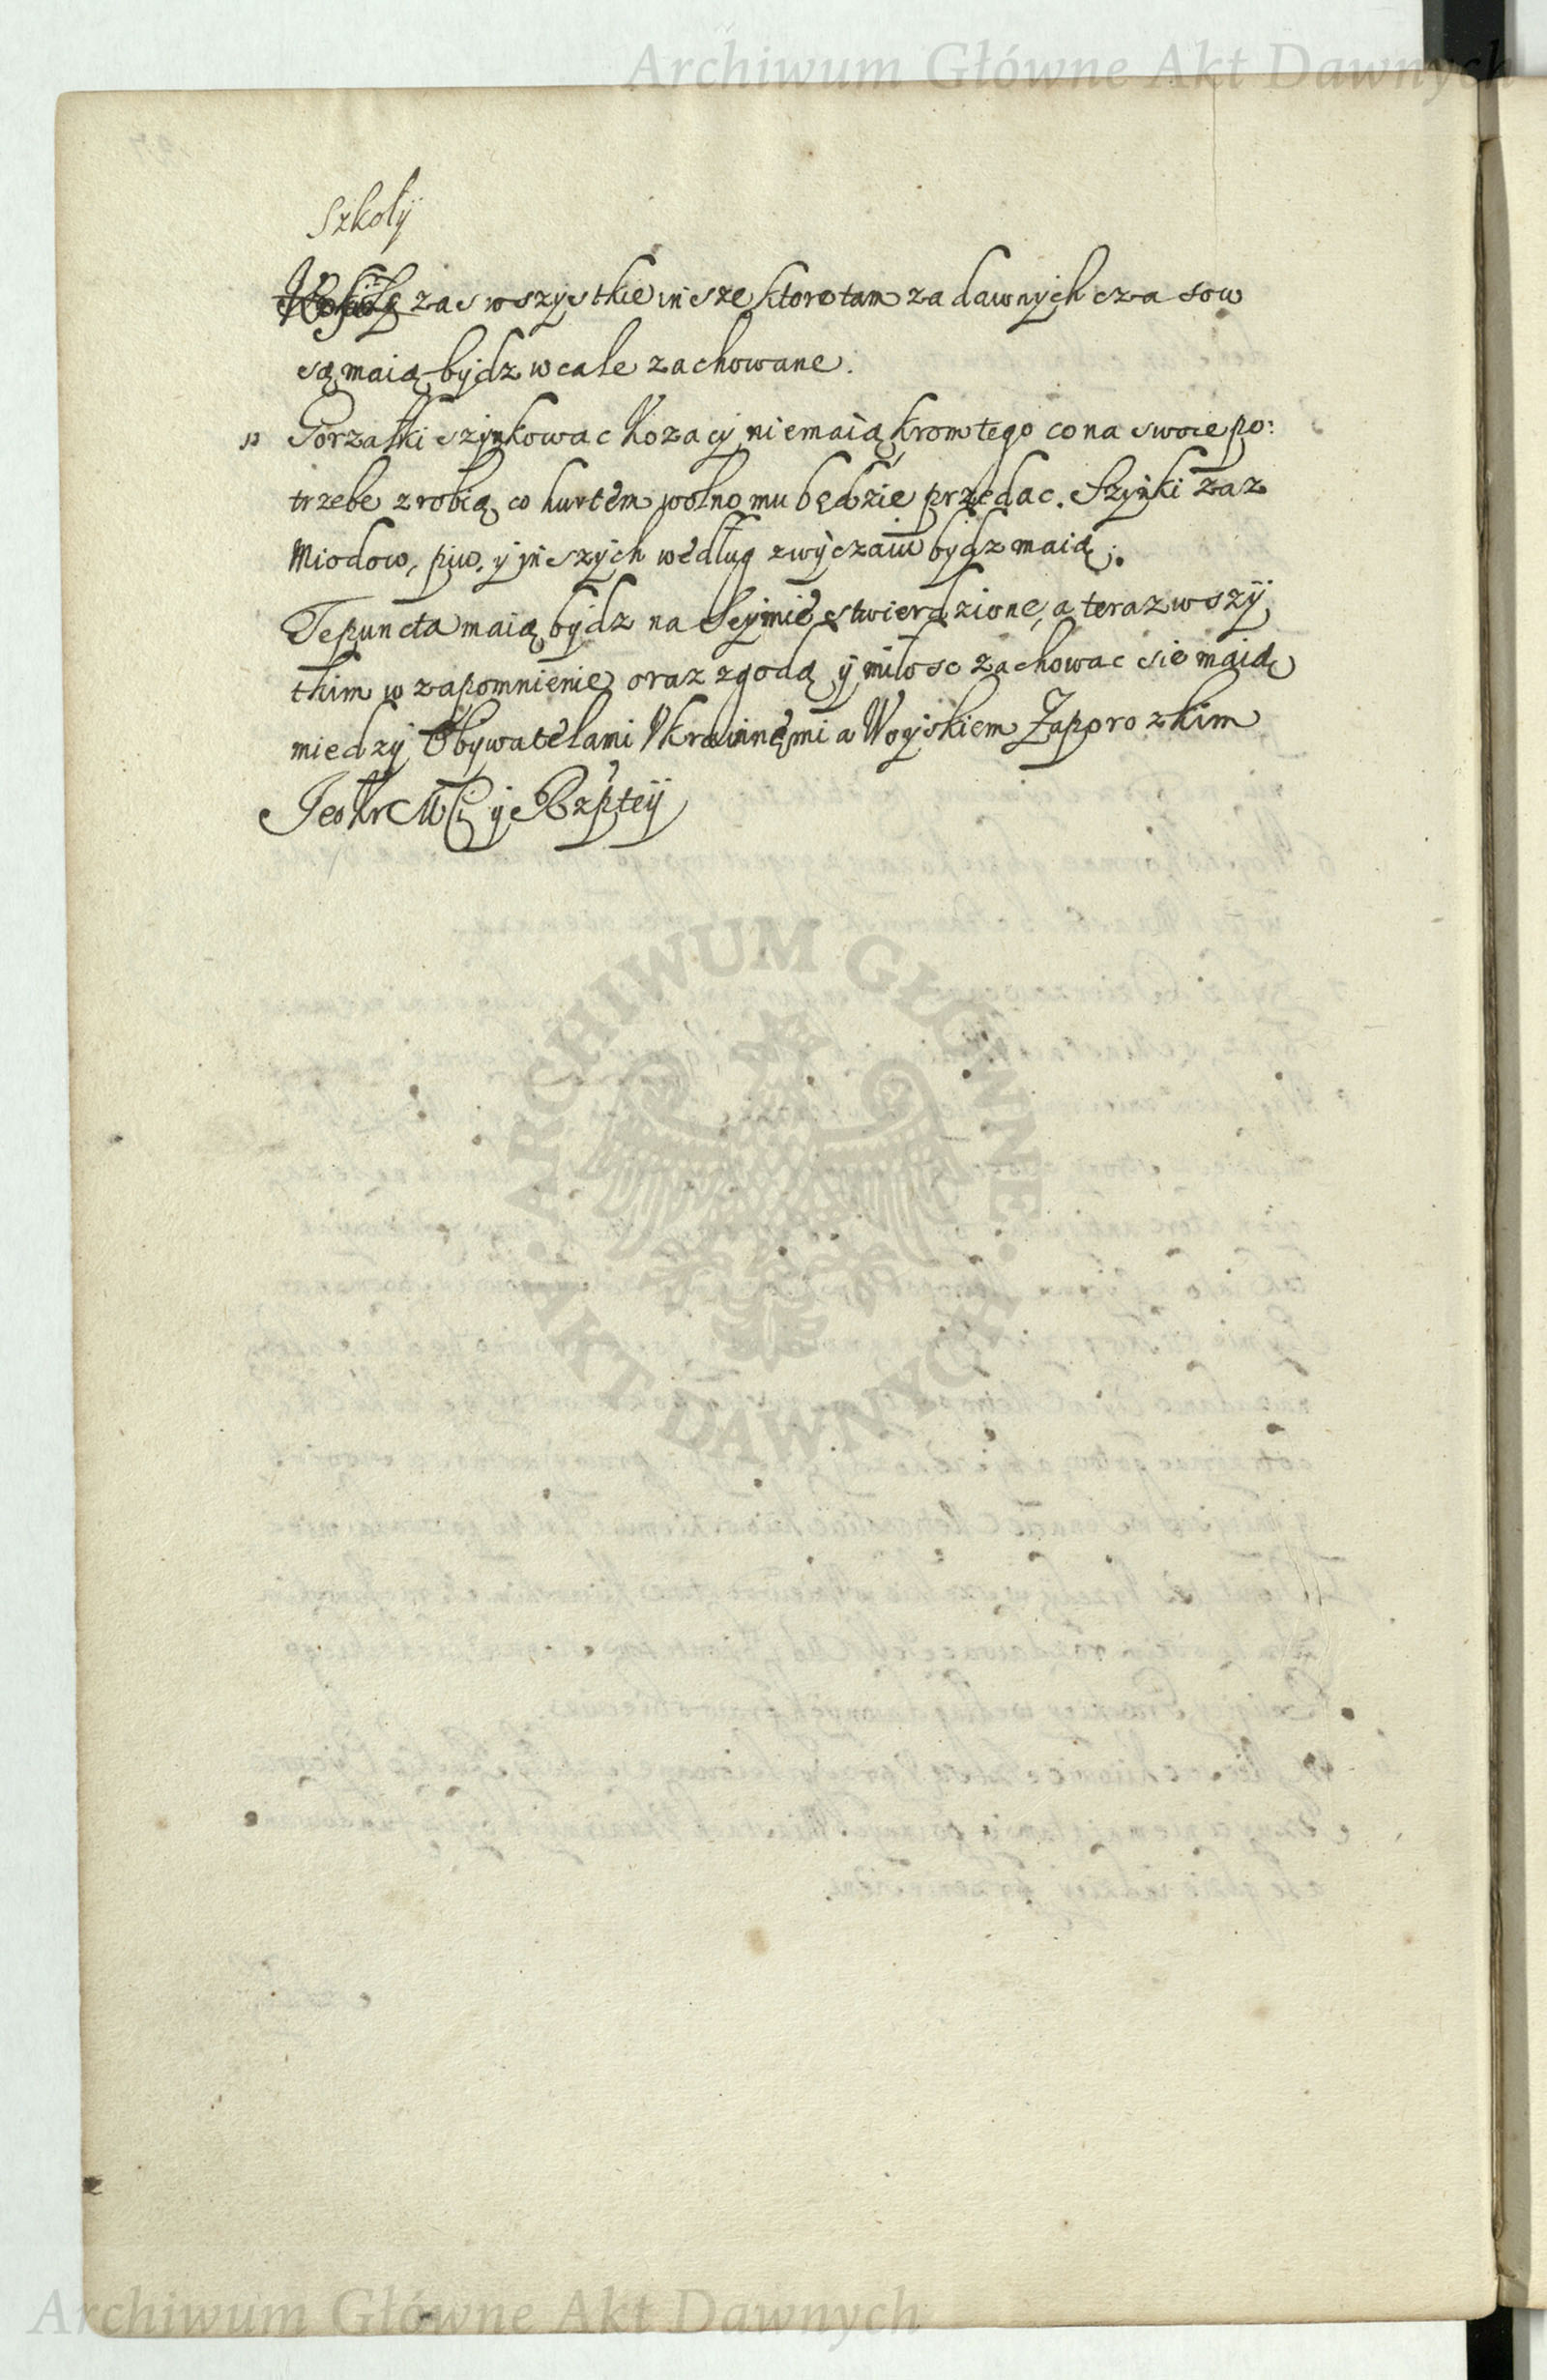 Archiwum Główne Akt Dawnych
Szkoły
zas wszystkie insze ktore tam za dawnych czasow
są maią bydz wcale zachowane.
Gorzałki szynkowac Kozacy niemaią krom tego co na swoie po:
trzebe zrobią, co hurtem wolno mu będzie przedac. Szynki zaz
Miodow, piw, y inszych według zwyczaiu bydz maią;.
Te puncta maią bydz na Seymie stwierdzione, a teraz wszy,
tkim w zapomnienie oraz zgodą y miłosc zachowac sie maią
miedzy Obywatelami Vkrainnemi a Woyskiem Zaporozkim
Jeo Kr Mci y Rzptey
ARCHIWUM GŁÓWNE · AKT DAWNYCH ·
Archiwum Główne Akt Dawnych